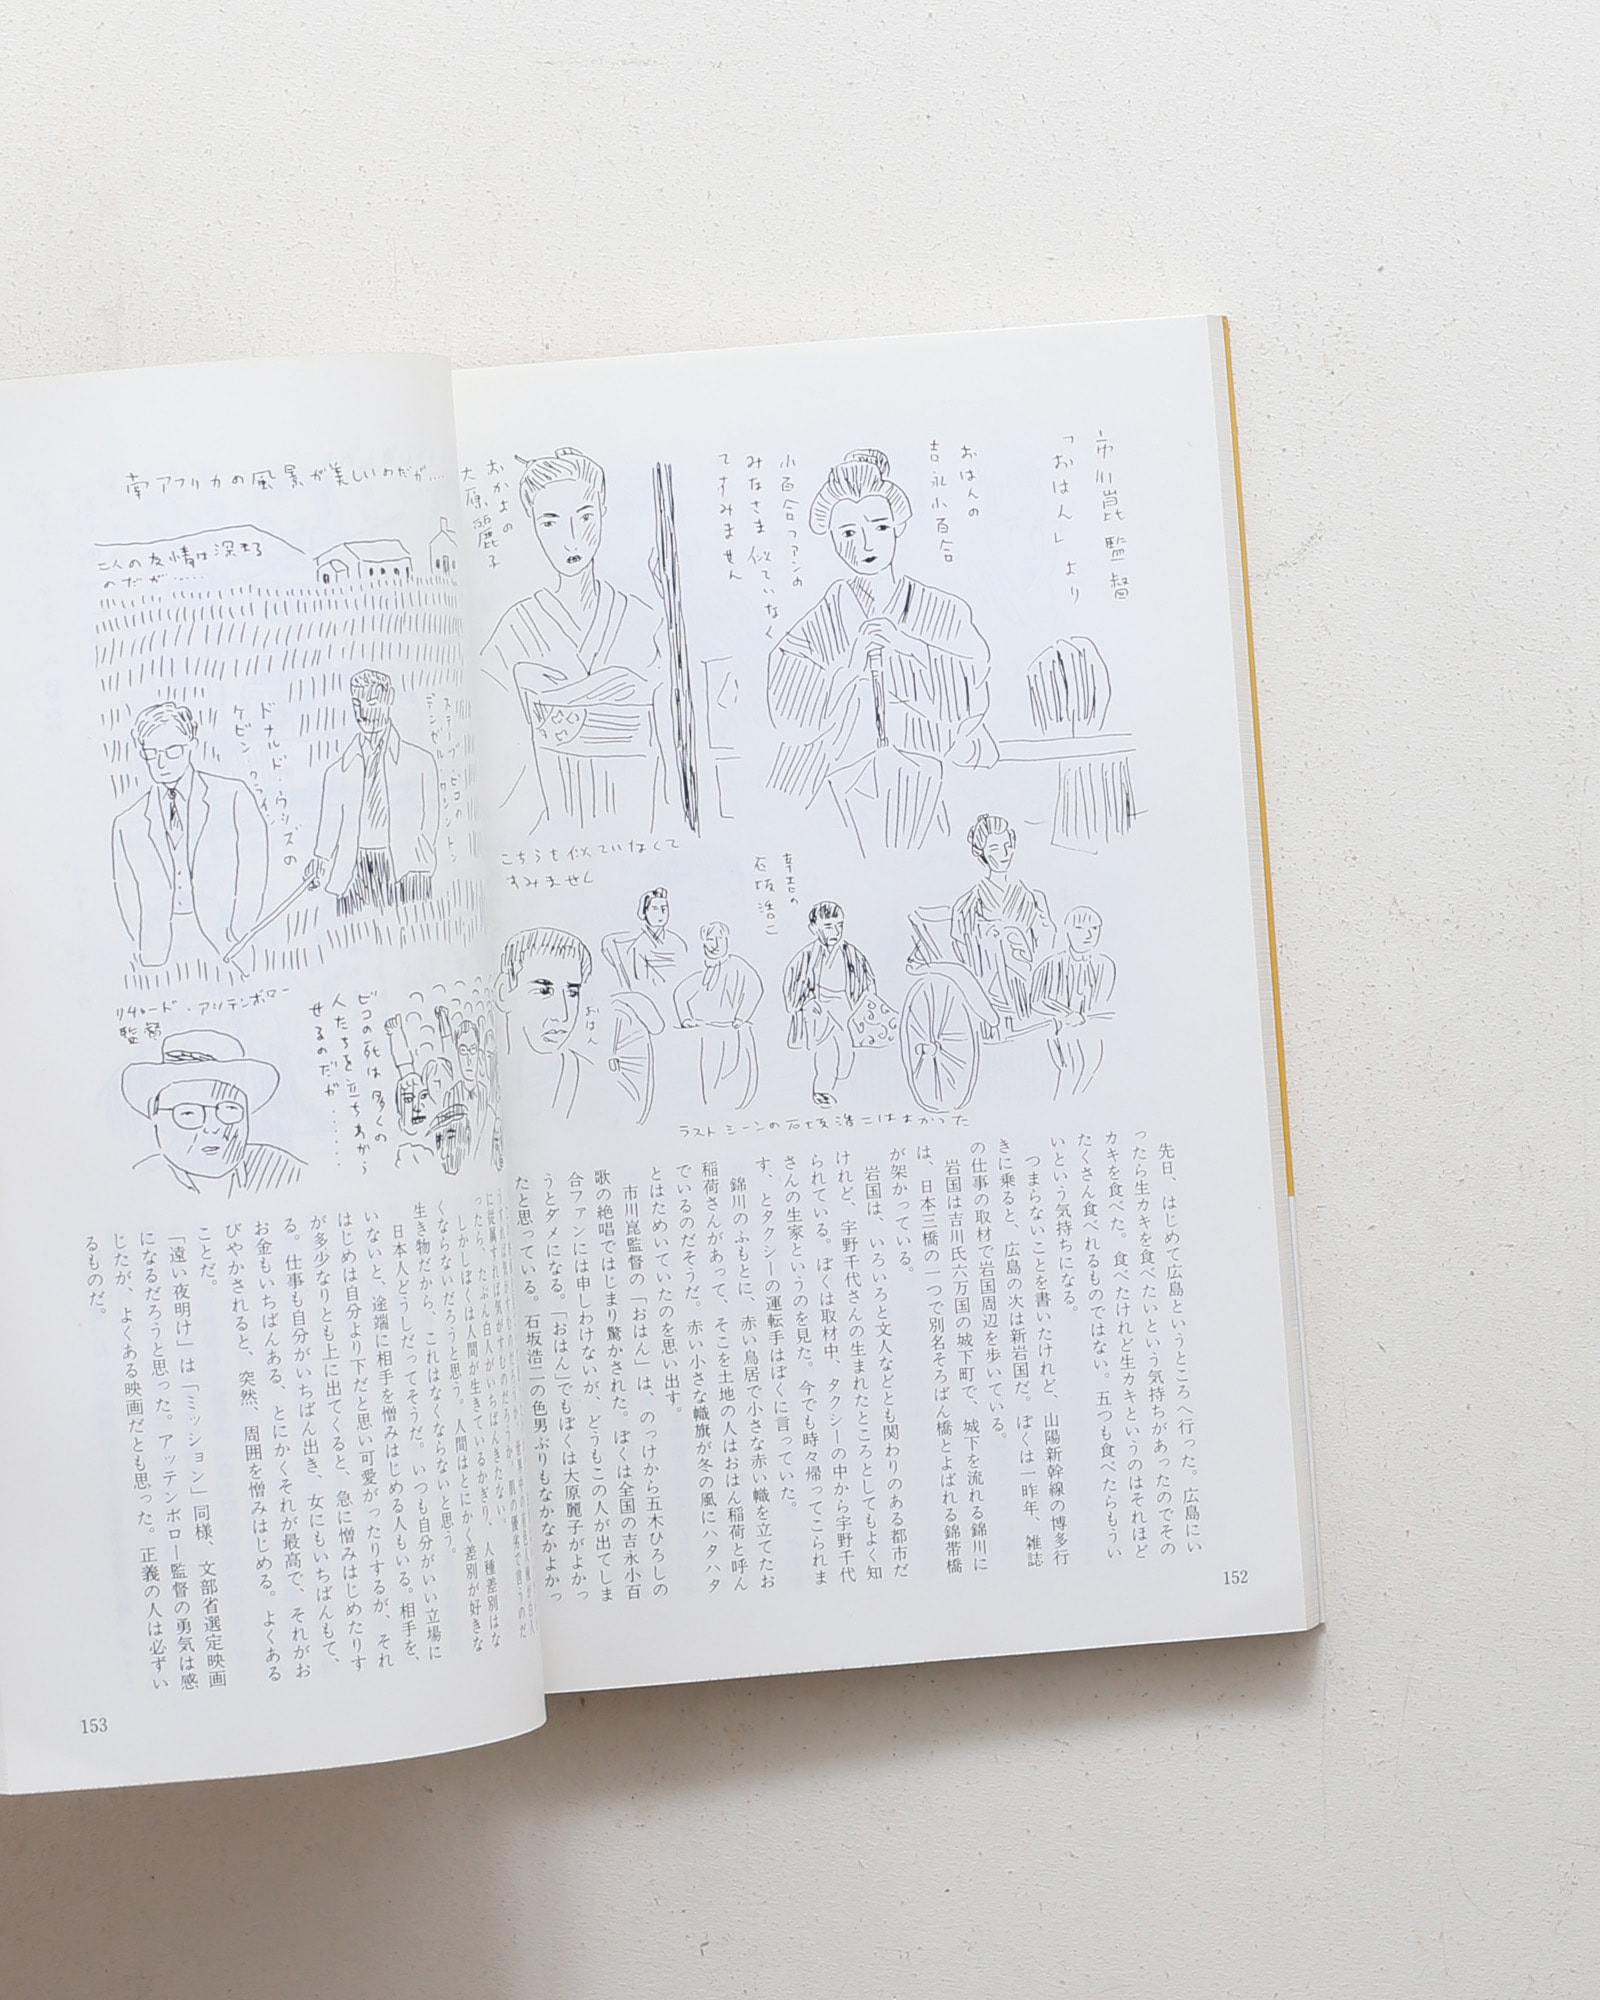 市川崑監督
「おはん」より
おはんの
吉永小百合
小百合ファンの
みなさま 似ていなく
てすみません
おかよの
大原麗子
こちらも似ていなくて
すみません
幸吉の
石坂浩二
おはん
ラストシーンの石坂浩二はよかった
先日、はじめて広島というところへ行った。広島にい
ったら生カキを食べたいという気持ちがあったのでその
カキを食べた。食べたけれど生カキというのはそれほど
たくさん食べれるものではない。五つも食べたらもうい
いという気持ちになる。
つまらないことを書いたけれど、山陽新幹線の博多行
きに乗ると、広島の次は新岩国だ。ぼくは一昨年、雑誌
の仕事の取材で岩国周辺を歩いている。
岩国は吉川氏六万国の城下町で、城下を流れる錦川に
は、日本三橋の一つで別名そろばん橋とよばれる錦帯橋
が架かっている。
岩国は、いろいろと文人などとも関わりのある都市だ
けれど、宇野千代さんの生まれたところとしてもよく知
られている。ぼくは取材中、タクシーの中から宇野千代
さんの生家というのを見た。今でも時々帰ってこられま
す、とタクシーの運転手はぼくに言っていた。
錦川のふもとに、赤い鳥居で小さな赤い幟を立てたお
稲荷さんがあって、そこを土地の人はおはん稲荷と呼ん
でいるのだそうだ。赤い小さな幟旗が冬の風にハタハタ
とはためいていたのを思い出す。
市川崑監督の「おはん」は、のっけから五木ひろしの
歌の絶唱ではじまり驚かされた。ぼくは全国の吉永小百
合ファンには申しわけないが、どうもこの人が出てしま
うとダメになる。「おはん」でもぼくは大原麗子がよかっ
たと思っている。石坂浩二の色男ぶりもなかなかよかっ
152
南アフリカの風景が美しいのだが……
二人の友情は深まる
のだが……
ドナルド・ウッズの
ケビン・クライン
スティーブ・ビコの
デンゼル・ワシントン
リチャード・アッテンボロー
監督
ビコの死は多くの
人たちを立ちあがら
せるのだが……
に従属すれば気がすむのだろうか。肌の優劣で言うのだ
ったら、たぶん白人がいちばんきたない。
しかしぼくは人間が生きているかぎり、人種差別はな
くならないだろうと思う。人間はとにかく差別が好きな
生き物だから、これはなくならないと思う。
日本人どうしだってそうだ。いつも自分がいい立場に
いないと、途端に相手を憎みはじめる人もいる。相手を、
はじめは自分より下だと思い可愛がったりするが、それ
が多少なりとも上に出てくると、急に憎みはじめたりす
る。仕事も自分がいちばん出き、女にもいちばんもて、
お金もいちばんある、とにかくそれが最高で、それがお
びやかされると、突然、周囲を憎みはじめる。よくある
ことだ。
「遠い夜明け」は「ミッション」同様、文部省選定映画
になるだろうと思った。アッテンボロー監督の勇気は感
じたが、よくある映画だとも思った。正義の人は必ずい
るものだ。
153